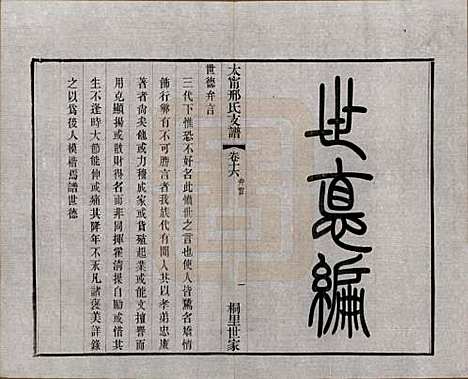 世悳編
太甯邢氏支譜
卷十六
弁言
一
桐里世家
世德弁言
三代下惟恐不好名此憤世之言也人皆驚名矯情
飾行鄉有不可勝言者我族代有聞人其以孝弟忠廉
著者尚矣他或力穡成家或貨殖起業或能文擅譽而
用克顯揚或散財得名而非同揮霍清操自勵或惜其
生不逢時大節能伸或其降年不永凡諸褒美詳錄
之以爲後人模楷焉譜世德